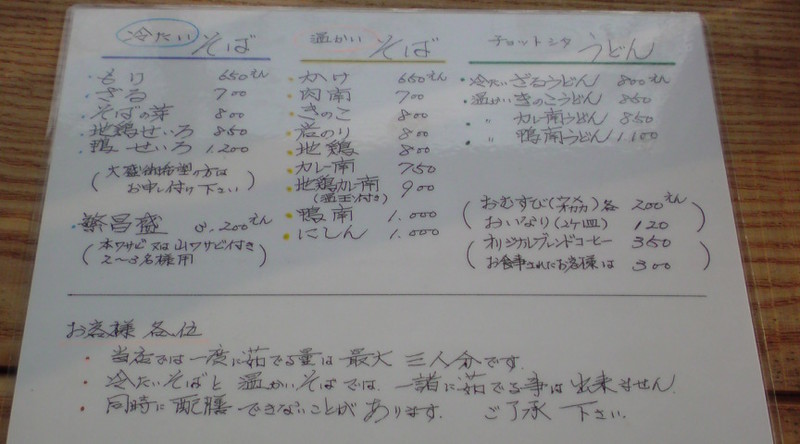 冷たい そば
・もり 650えん
・ざる 700
・そばの芽 800
・地鶏せいろ 850
・鴨せいろ 1.200
(大盛御希望の方は
お申し付け下さい)
・繁昌盛 3.200えん
(本ワサビ又は山ワサビ付き
2〜3名様用)
温かい そば
・かけ 650えん
・肉南 700
・きのこ 800
・岩のり 800
・地鶏 800
・カレー南 750
・地鶏カレー南 900
(温玉付き)
・鴨南 1.000
・にしん 1.000
チョットシタ うどん
・冷たい ざるうどん 800えん
・温かい きのこうどん 850
・〃 カレー南うどん 850
・〃 鴨南うどん 1.100
おむすび 各 200えん
おいなり(2ケ皿) 120
オリジナルブレンドコーヒー 350
お食事されたお客様は 300
お客様 各位
・当店では一度に茹でる量は最大 三人分です.
・冷たいそばと 温かいそばでは 一諸に茹でる事は出来ません.
・同時に配膳できないことがあります. ご了承 下さい.